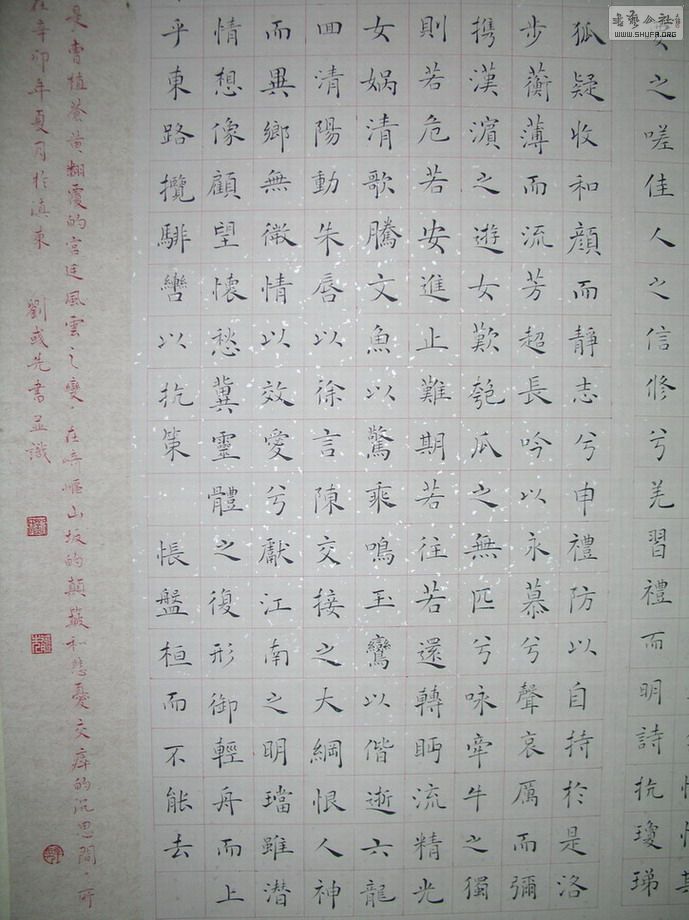 書藝公社
WWW.SHUFA.ORG
之嗟佳人之信修兮羌習禮而明詩抗瓊珶
狐疑收和顏而靜志兮申禮防以自持於是洛
步蘅薄而流芳超長吟以永慕兮聲哀厲而彌
携漢濱之遊女歎匏瓜之無匹兮咏牽牛之獨
則若危若安進止難期若往若還轉眄流精光
女媧清歌騰文魚以驚乘鳴玉鸞以偕逝六龍
回清陽動朱唇以徐言陳交接之大綱恨人神
而異鄉無微情以效愛兮獻江南之明璫雖潜
情想像顧望懷愁冀靈體之復形御輕舟而上
乎東路攬騑轡以抗策 悵盤桓而不能去
是曹植蒼黄翻覆的宮廷風雲之變，在崎嶇山坂的顛簸和悲憂交瘁的沉思間，所
在辛卯年夏月於滇東 劉彧先書並識